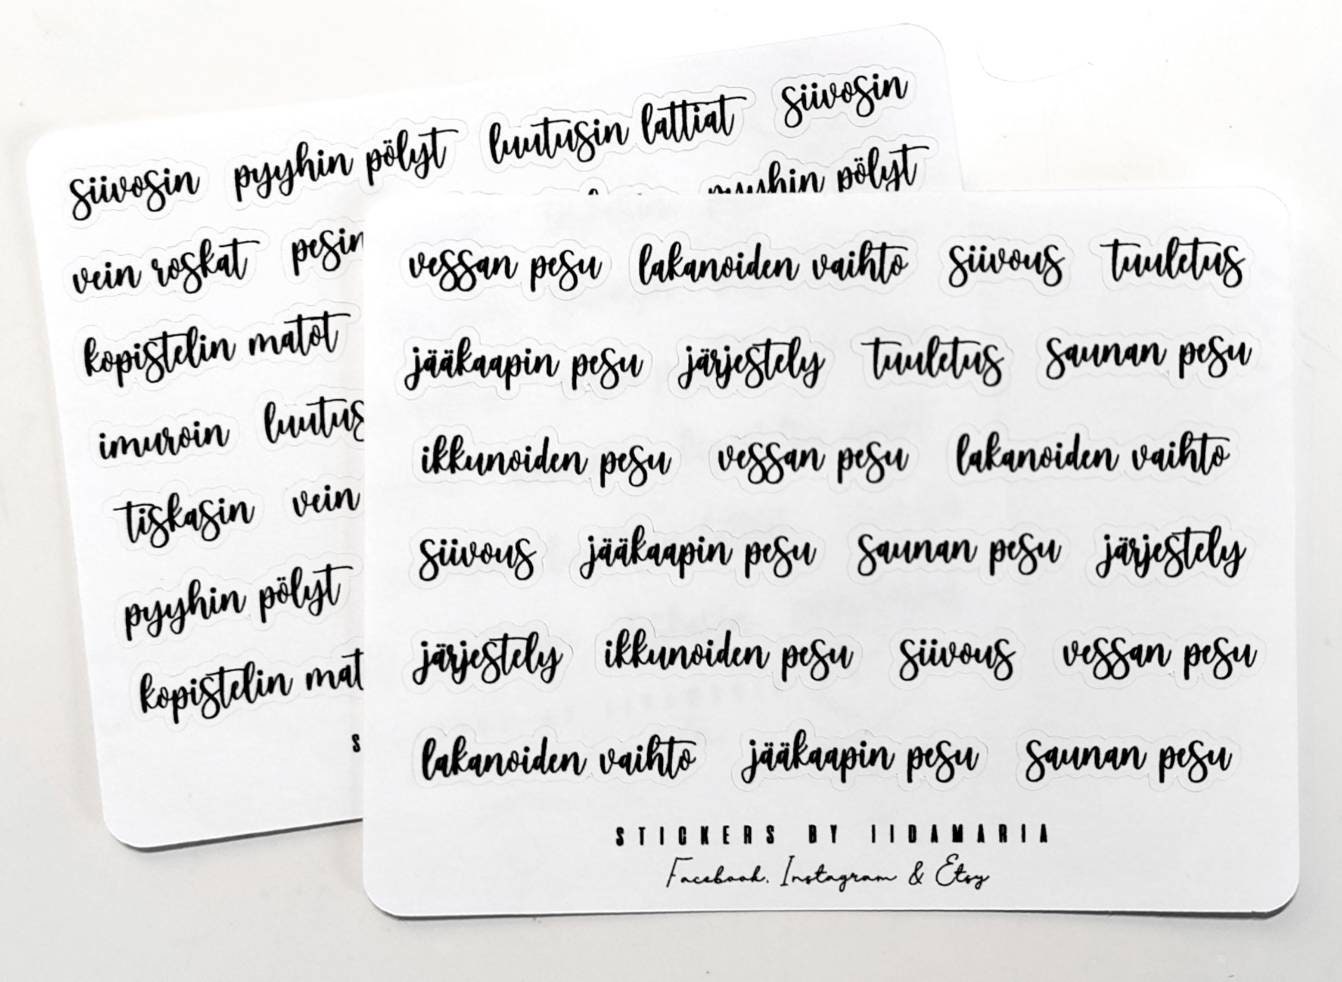 siivosin pyyhin pölyt luutusin lattiat siivosin
pyyhin pölyt
vein roskat pesin
kopistelin matot
imuroin luutus
tiskasin vein
pyyhin pölyt
kopistelin mat
S
vessan pesu lakanoiden vaihto siivous tuuletus
jääkaapin pesu järjestely tuuletus saunan pesu
ikkunoiden pesu vessan pesu lakanoiden vaihto
siivous jääkaapin pesu saunan pesu järjestely
järjestely ikkunoiden pesu siivous vessan pesu
lakanoiden vaihto jääkaapin pesu saunan pesu
STICKERS BY IIDAMARIA
Facebook, Instagram & Etsy